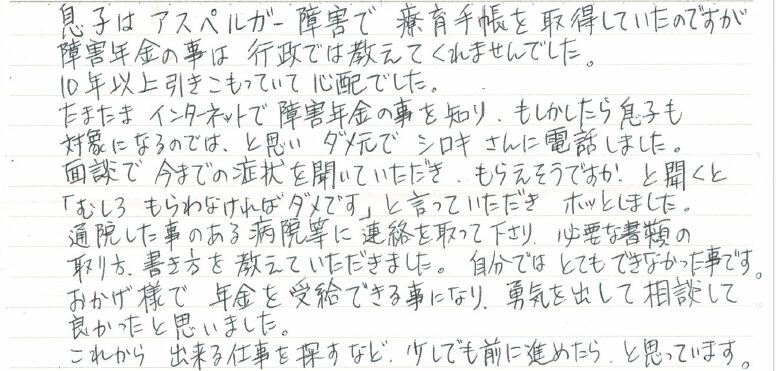 息子は アスペルガー障害で 療育手帳を 取得していたのですが
障害年金の事は 行政では教えてくれませんでした。
10年以上引きこもっていて 心配でした。
たまたま インターネットで 障害年金の事を 知り、もしかしたら 息子も
対象になるのでは、と思い ダメ元で シロキ さんに 電話しました。
面談で 今までの症状を聞いていただき、もらえそうですか と聞くと
「むしろ もらわなければダメです」と言っていただき ホッとしました。
通院した事のある 病院等に 連絡を取って下さり、必要な書類の
取り方、書き方を 教えていただきました。 自分では とてもできなかった事です。
おかげ様で 年金を 受給できる事になり、勇気を出して 相談して
良かったと思いました。
これから 出来る仕事を 探すなど、少しでも前に進めたら、と思っています。